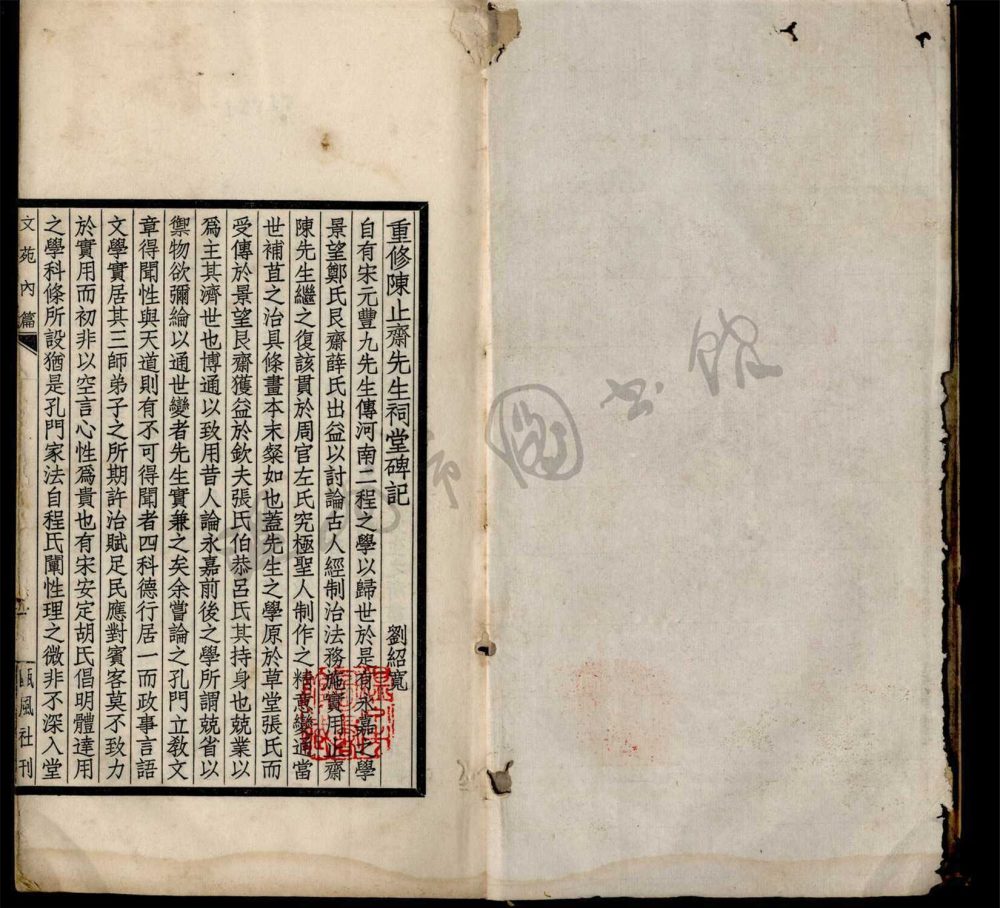 重修陳止齋先生祠堂碑記
劉紹寬
自有宋元豐九先生傳河南二程之學以歸世於是有永嘉之學
景望鄭氏艮齋薛氏出益以討論古人經制治法務施實用止齋
陳先生繼之復該貫於周官左氏究極聖人制作之精意變通當
世補苴之治具條畫本末粲如也蓋先生之學原於草堂張氏而
受傳於景望艮齋獲益於欽夫張氏伯恭呂氏其持身也兢業以
爲主其濟世也博通以致用昔人論永嘉前後之學所謂兢省以
禦物欲彌綸以通世變者先生實兼之矣余嘗論之孔門立敎文
章得聞性與天道則有不可得聞者四科德行居一而政事言語
文學實居其三師弟子之所期許治賦足民應對賓客莫不致力
於實用而初非以空言心性爲貴也有宋安定胡氏倡明體達用
之學科條所設猶是孔門家法自程氏闡性理之微非不深入堂
文苑內篇
一
甌風社刊
圖書館